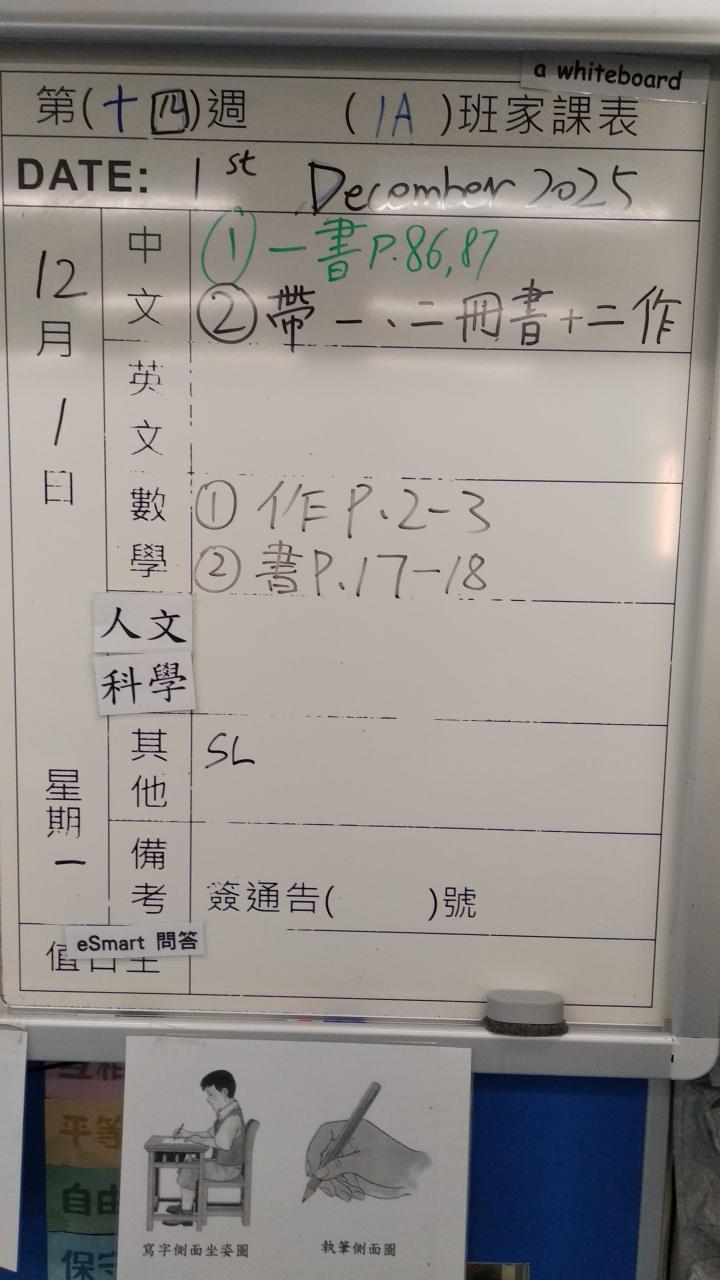 a whiteboard
第(十四)週 (1A)班家課表
DATE: 1st December 2025
12月1日
星期一
中文
①一書P.86,87
②帶一、二冊書+二作
英文
數學
①作P.2-3
②書P.17-18
人文
科學
其他
SL
備考
簽通告( )號
eSmart 問答
值日生
平等
自由
保守
寫字側面坐姿圖
執筆側面圖